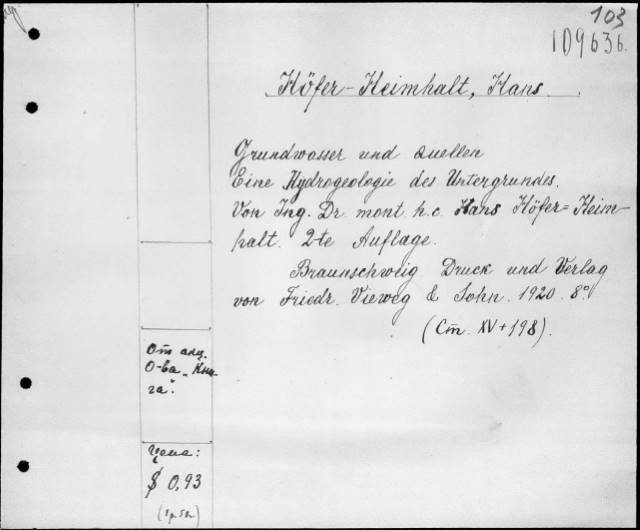 103
109636.
Höfer-Heimhalt, Hans.
Grundwasser und Quellen
Eine Hydrogeologie des Untergrundes.
Von Ing. Dr. mont. h.c. Hans Höfer=Heim-
halt. 2-te Auflage.
Braunschweig Druck und Verlag
von Friedr. Vieweg & Sohn. 1920. 8°.
(Стр. XV+198).
От акц.
О-ва „Кни-
га".
Цена:
$ 0,93